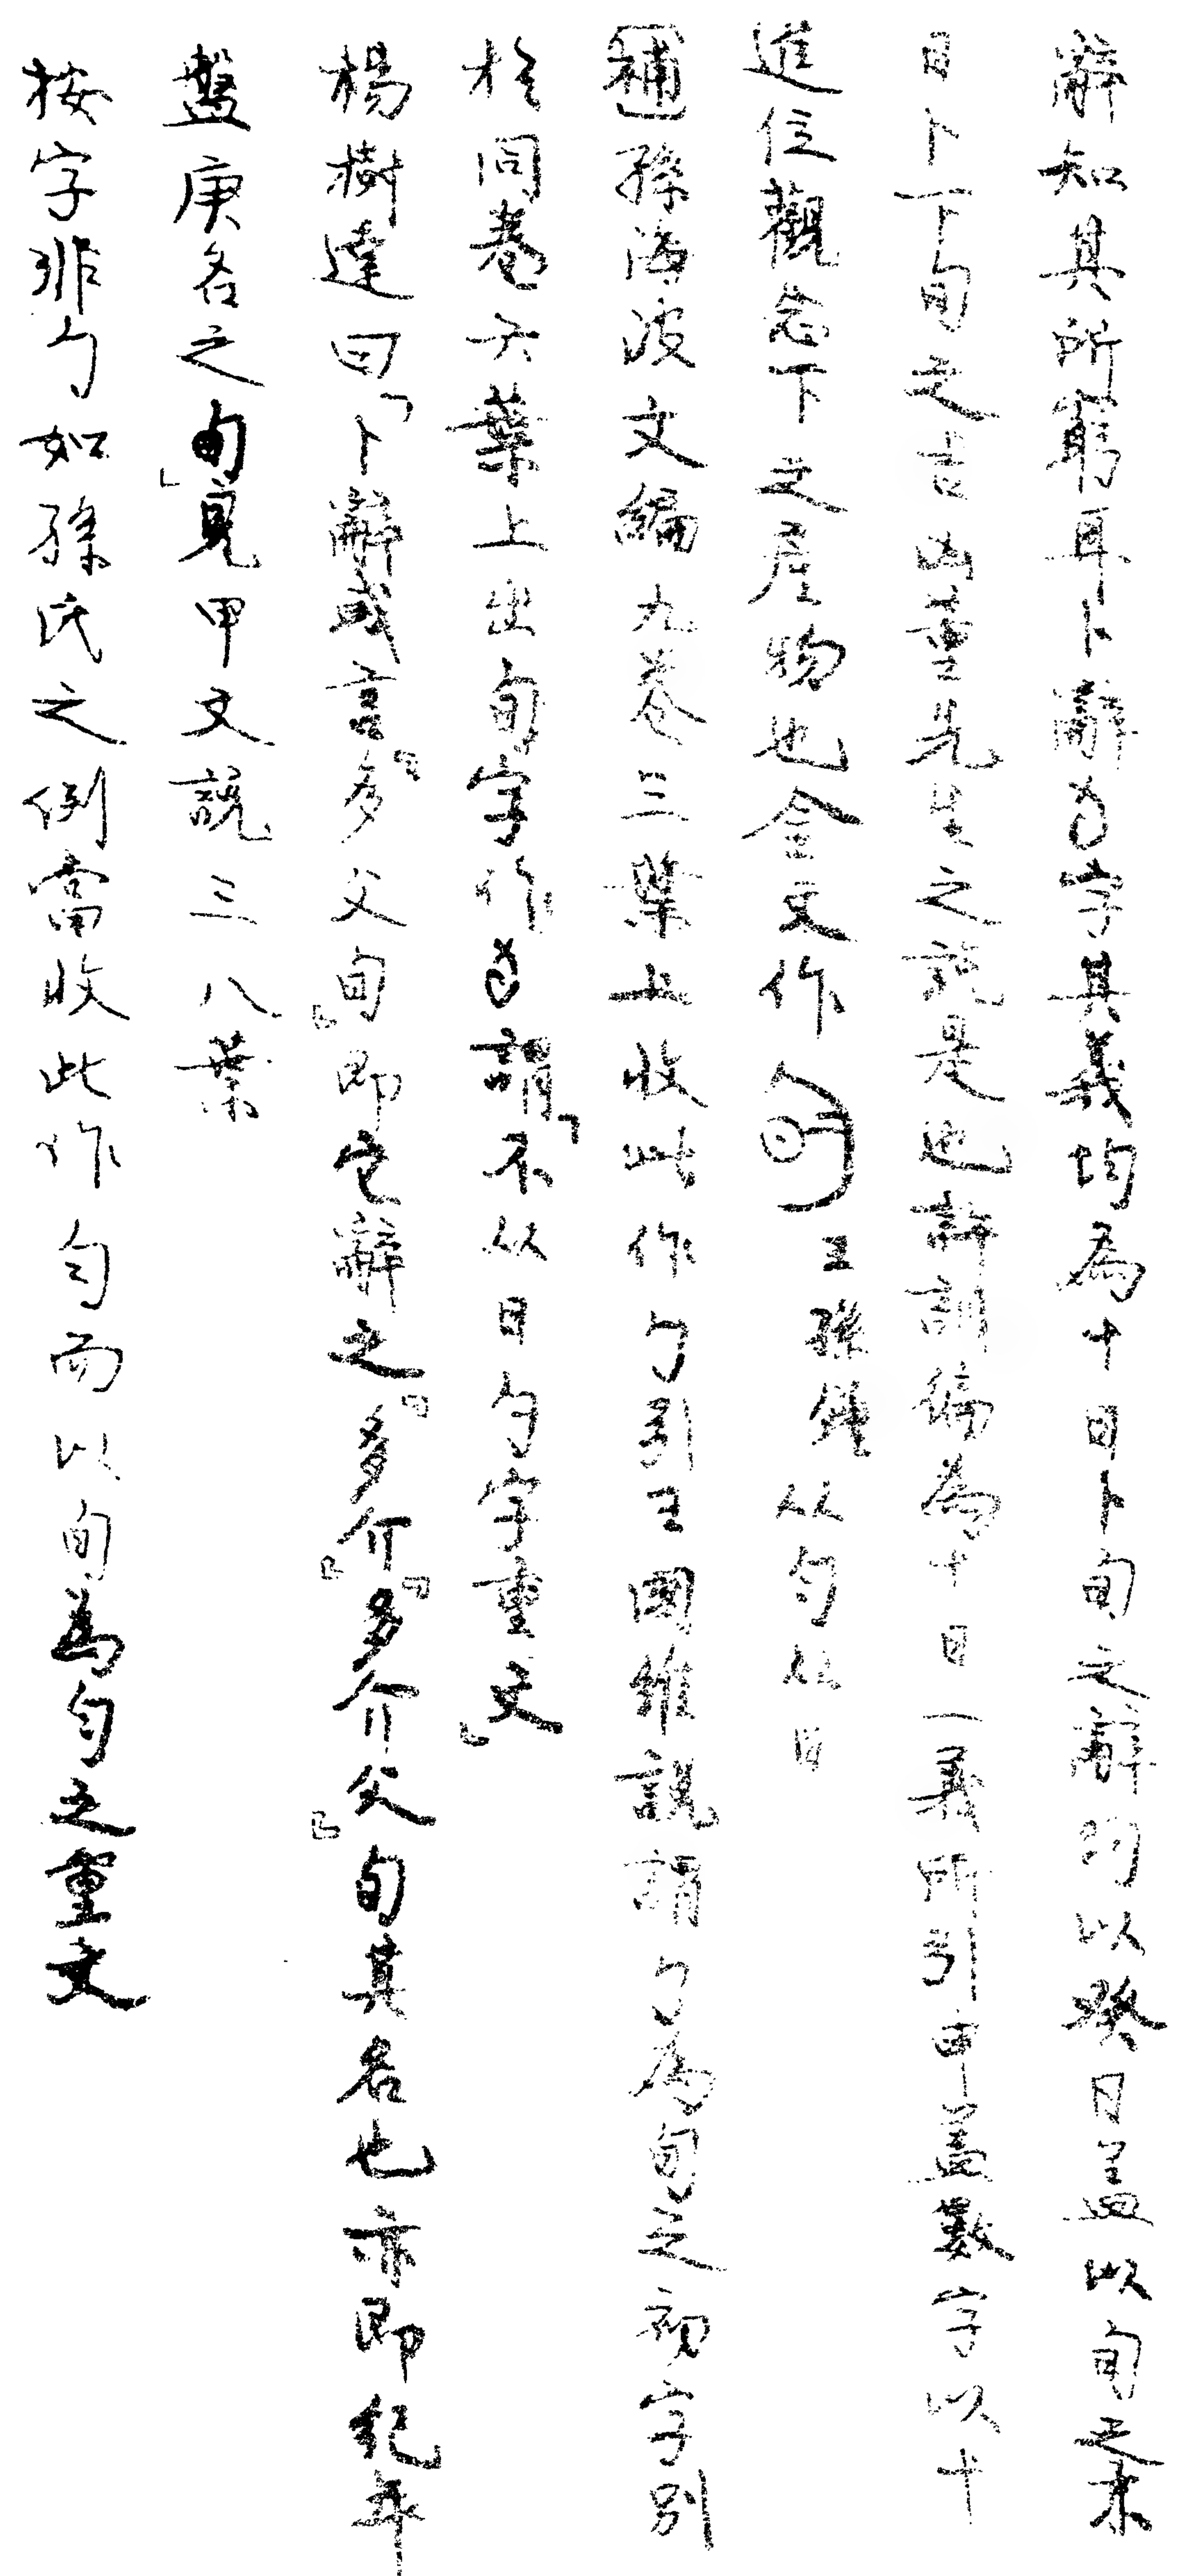 辭知其所窮耳卜辭字其義均為十日卜旬之辭均以癸日蓋以旬之末
日卜下旬之吉凶董先生之說是也許訓徧為十日一義所引申蓋數字以十
進位觀念下之產物也金文作王孫鐘从勻从日
〔補〕孫海波文編九卷三葉上收此作勹引王國維說謂勹為旬之初字別
於同卷六葉上出旬字作謂「不从日勹字重文」
楊樹達曰「卜辭或言『多父旬』即它辭之『多介』『多介父』旬其名也亦即紀年
盤庚名之旬」見甲文說三八葉
按字非勹如孫氏之例當收此作勻而以旬為勻之重文